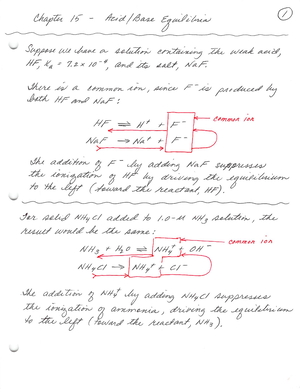 ①
Chapter 15 - Acid/Base Equilibria
Suppose we have a solution containing the weak acid,
HF, Ka = 7.2 x 10⁻⁴, and its salt, NaF.
There is a common ion, since F⁻ is produced by
both HF and NaF:
common ion
HF ⇌ H⁺ + F⁻
NaF → Na⁺ + F⁻
The addition of F⁻ by adding NaF suppresses
the ionization of HF by driving the equilibrium
to the left (toward the reactant, HF).
For solid NH₄Cl added to 1.0-M NH₃ solution, the
result would be the same:
common ion
NH₃ + H₂O ⇌ NH₄⁺ + OH⁻
NH₄Cl → NH₄⁺ + Cl⁻
The addition of NH₄⁺ by adding NH₄Cl suppresses
the ionization of ammonia, driving the equilibrium
to the left (toward the reactant, NH₃).